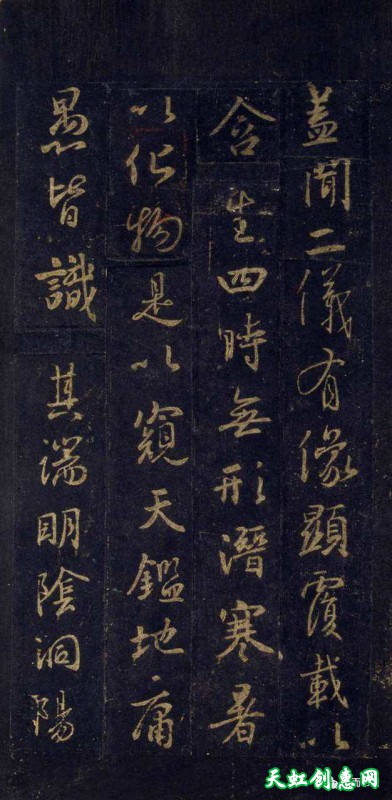 盖聞二儀有像顯覆載以
含生四時無形潛寒暑
以化物是以窺天鑑地庸
愚皆識其端明陰洞陽
天虹创意网